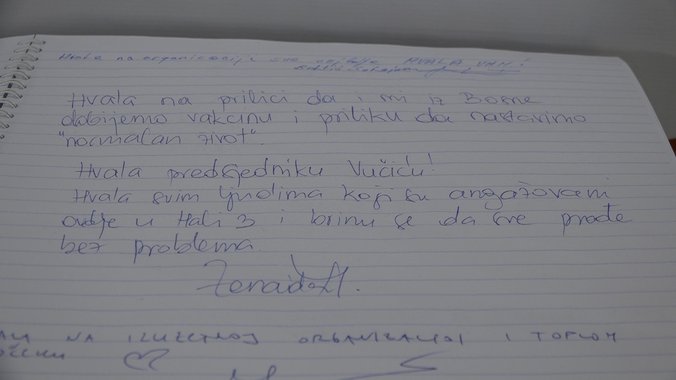 Hvala na organizaciji sve HVALA VAM!
Hvala na prilici da i mi iz Bosne
dobijemo vakcinu i priliku da nastavimo
"normalan život".
Hvala predsjedniku Vučiću!
Hvala svim ljudima koji su angažovani
ovdje u Hali 3 i brinu se da sve prođe
bez problema.
NA IZUZETNOJ ORGANIZACIJI I TOPLOM